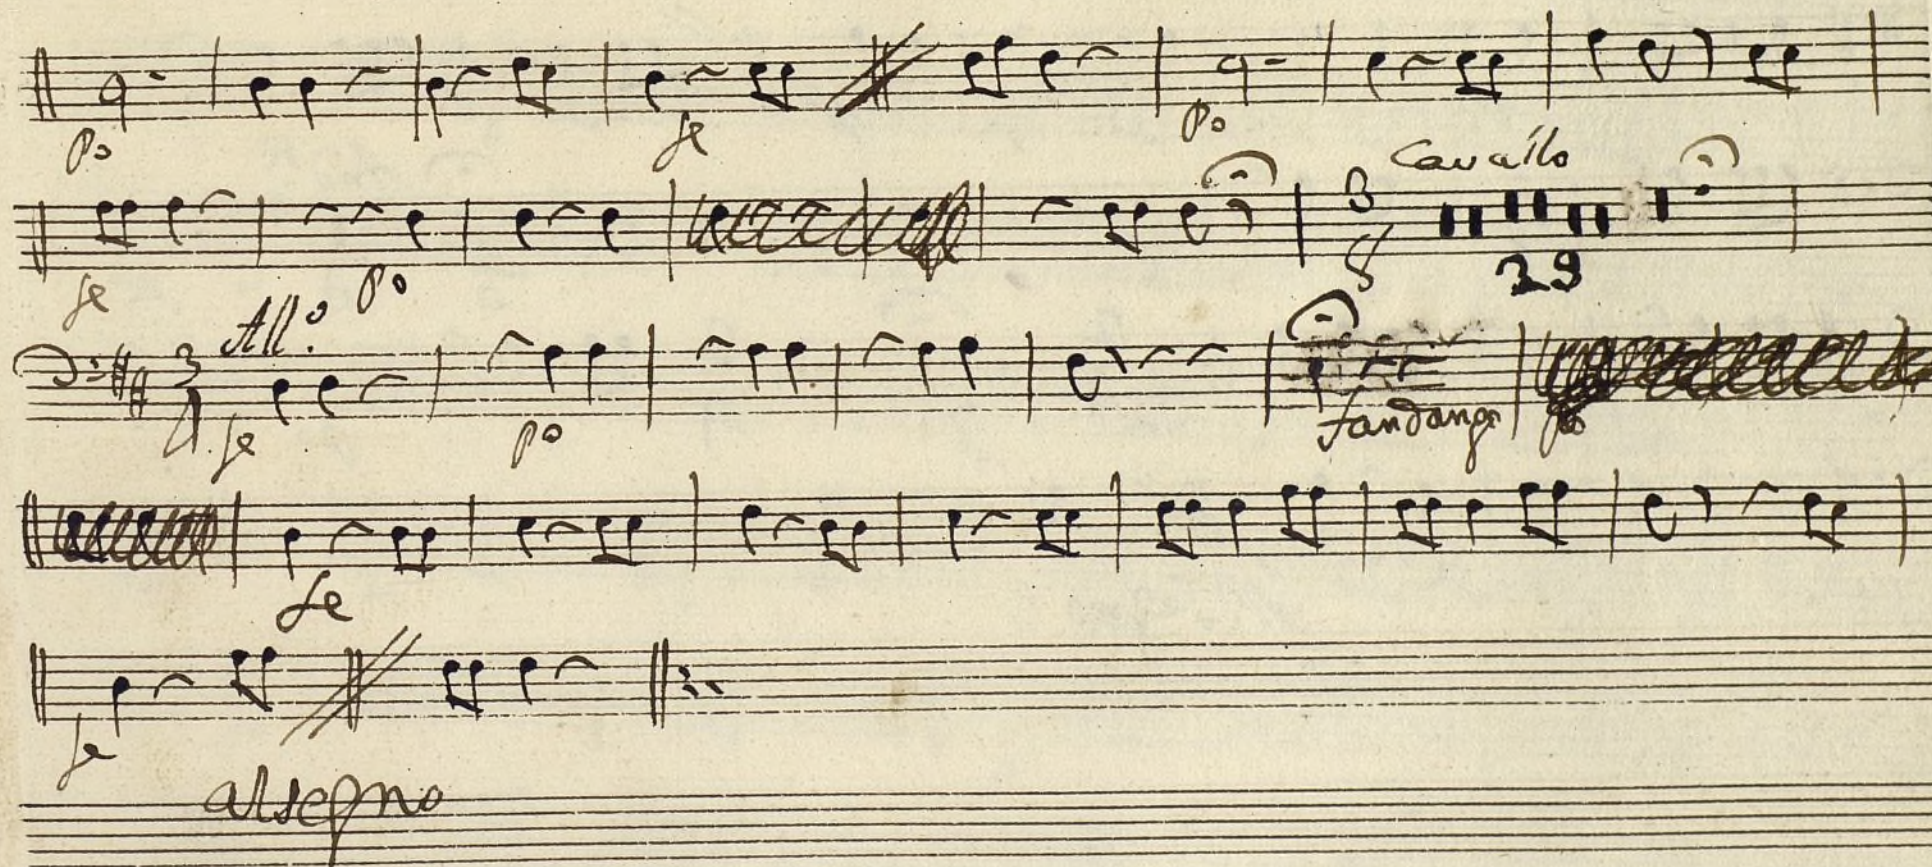 Po fe Po
Cavallo
3
8
29
fe Po
All.o
3
4
fe po fandango po
fe
fe
al segno